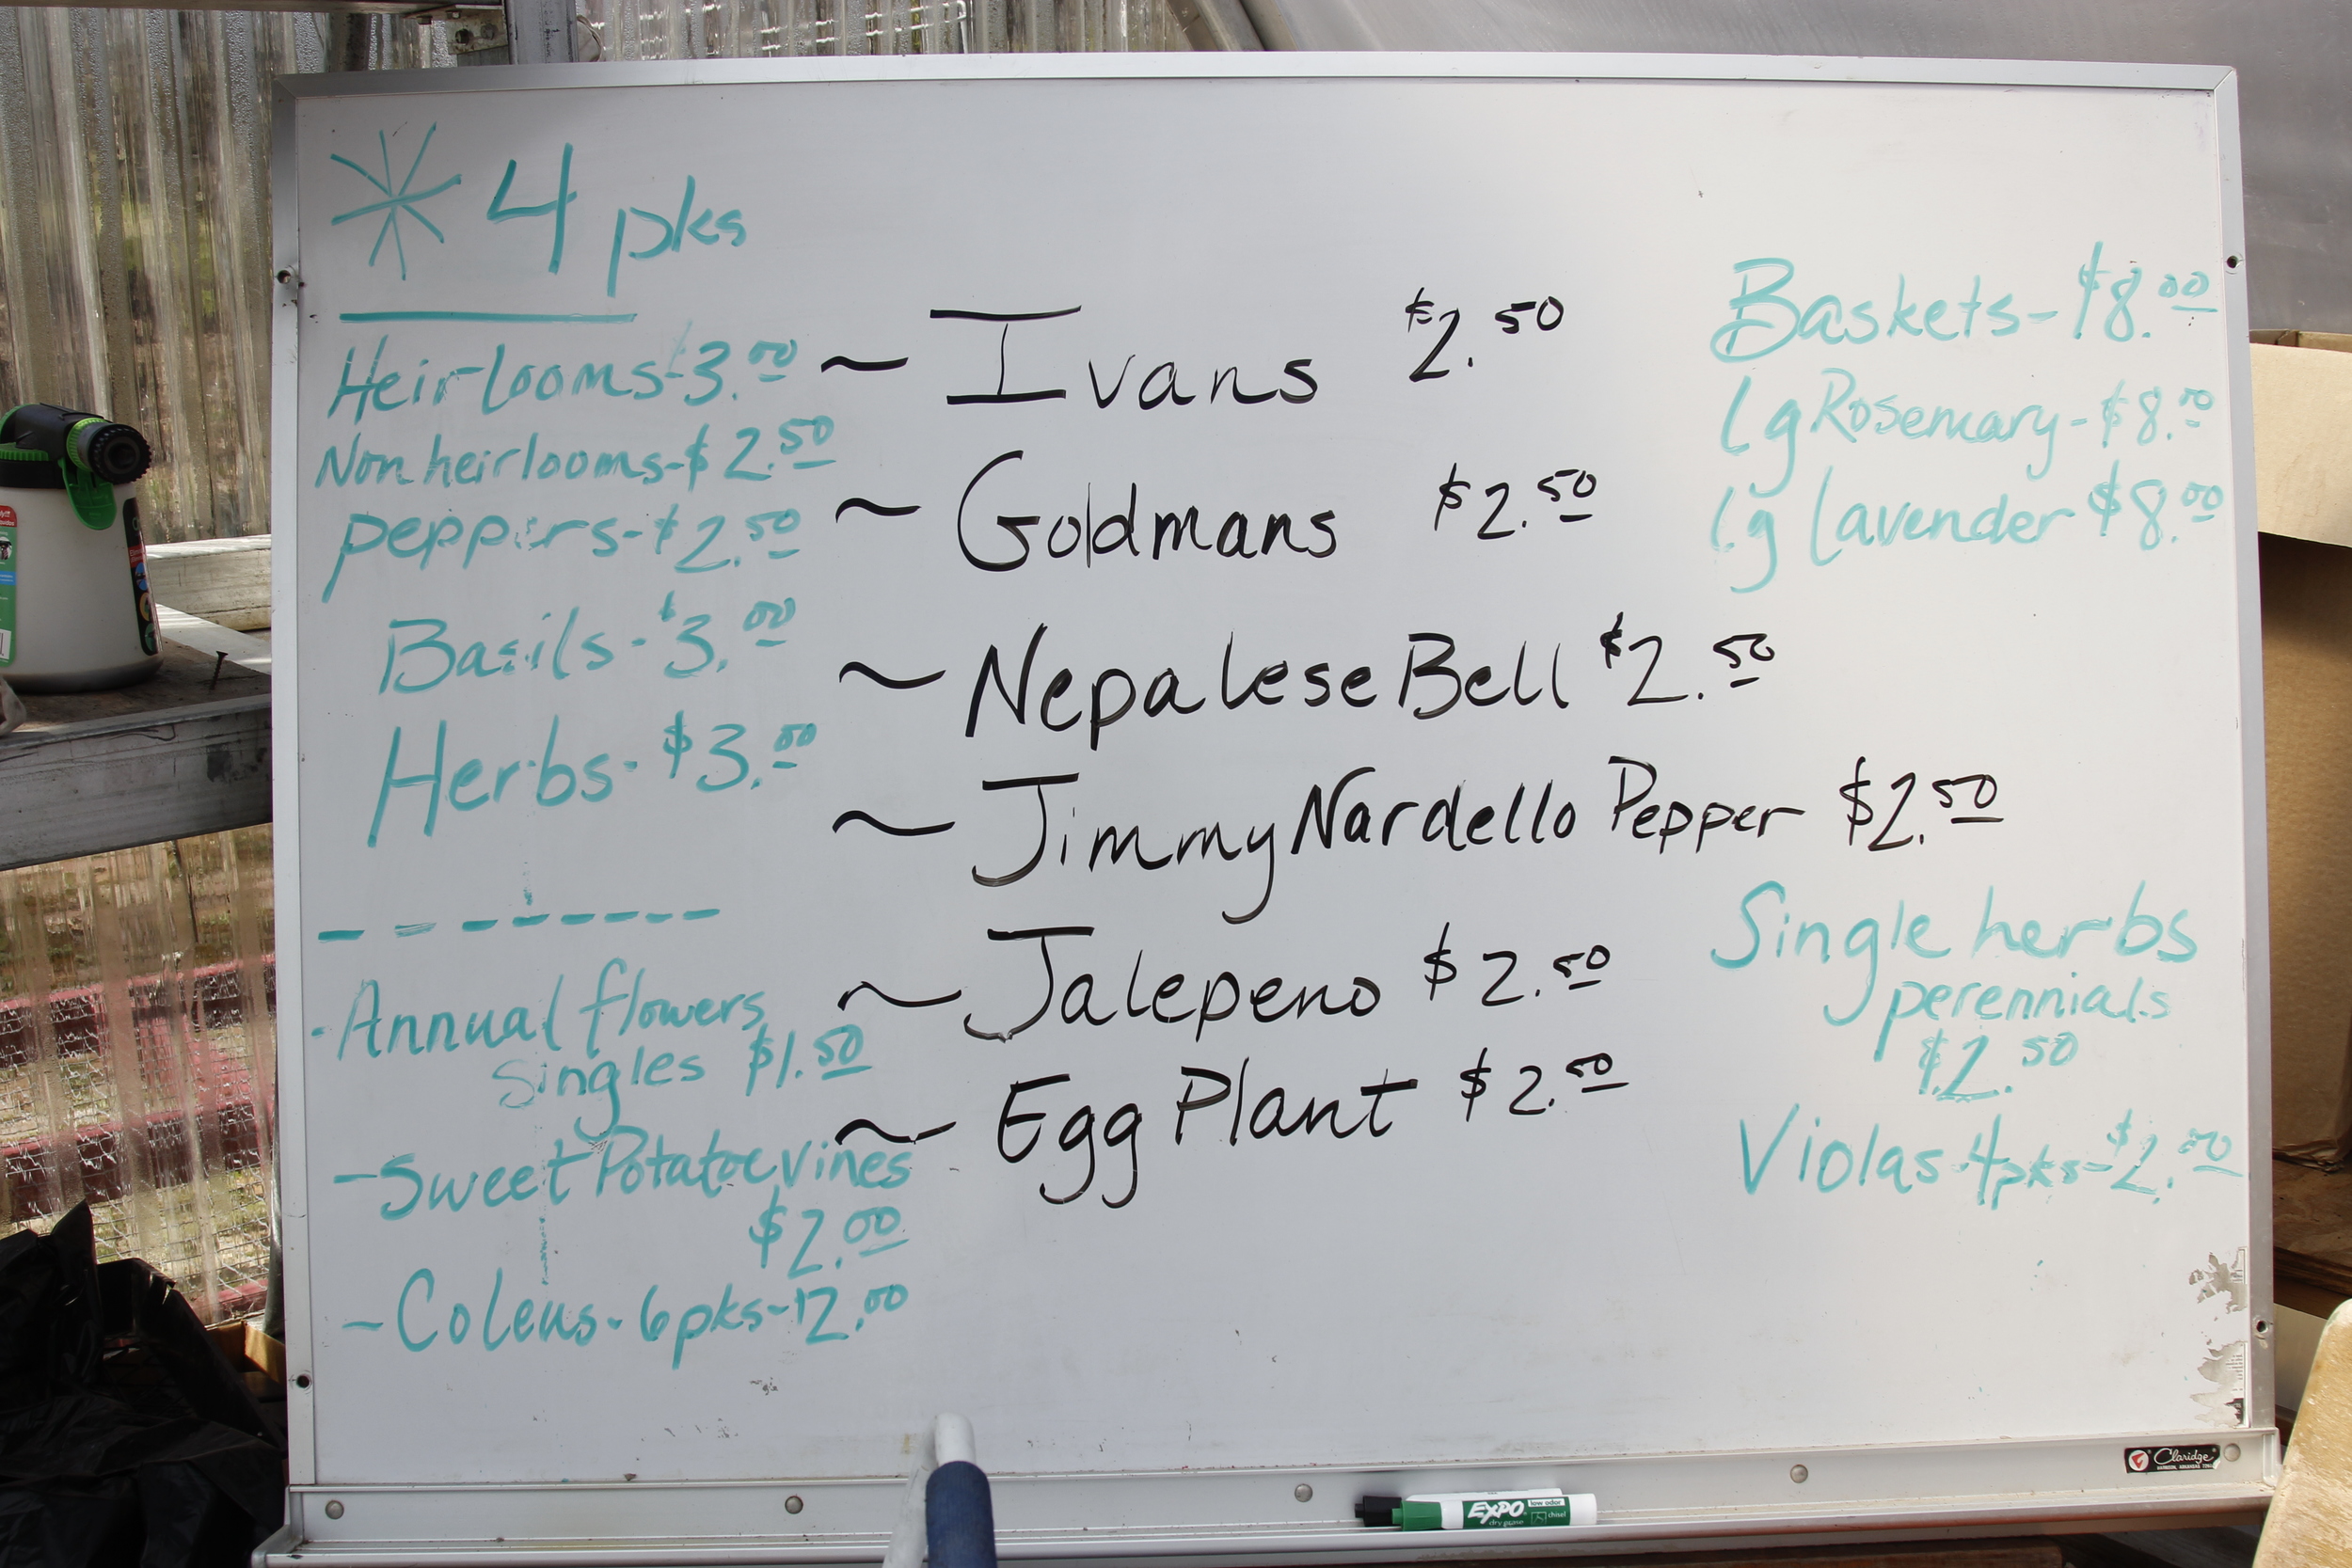 * 4 pks
Heirlooms-$3.00
Non heirlooms-$2.50
peppers-$2.50
Basils-$3.00
Herbs-$3.00
- - - - - - - -
-Annual flowers
singles $1.50
-Sweet Potatoe vines
$2.00
-Coleus-6pks-12.00
~ Ivans $2.50
~ Goldmans $2.50
~ Nepalese Bell $2.50
~ Jimmy Nardello Pepper $2.50
~ Jalepeno $2.50
~ Egg Plant $2.50
Baskets-$8.00
lg Rosemary-$8.00
lg lavender $8.00
Single herbs
perennials
$2.50
Violas-4pks-$2.00
Claridge
EXPO
low odor
dry erase
chisel